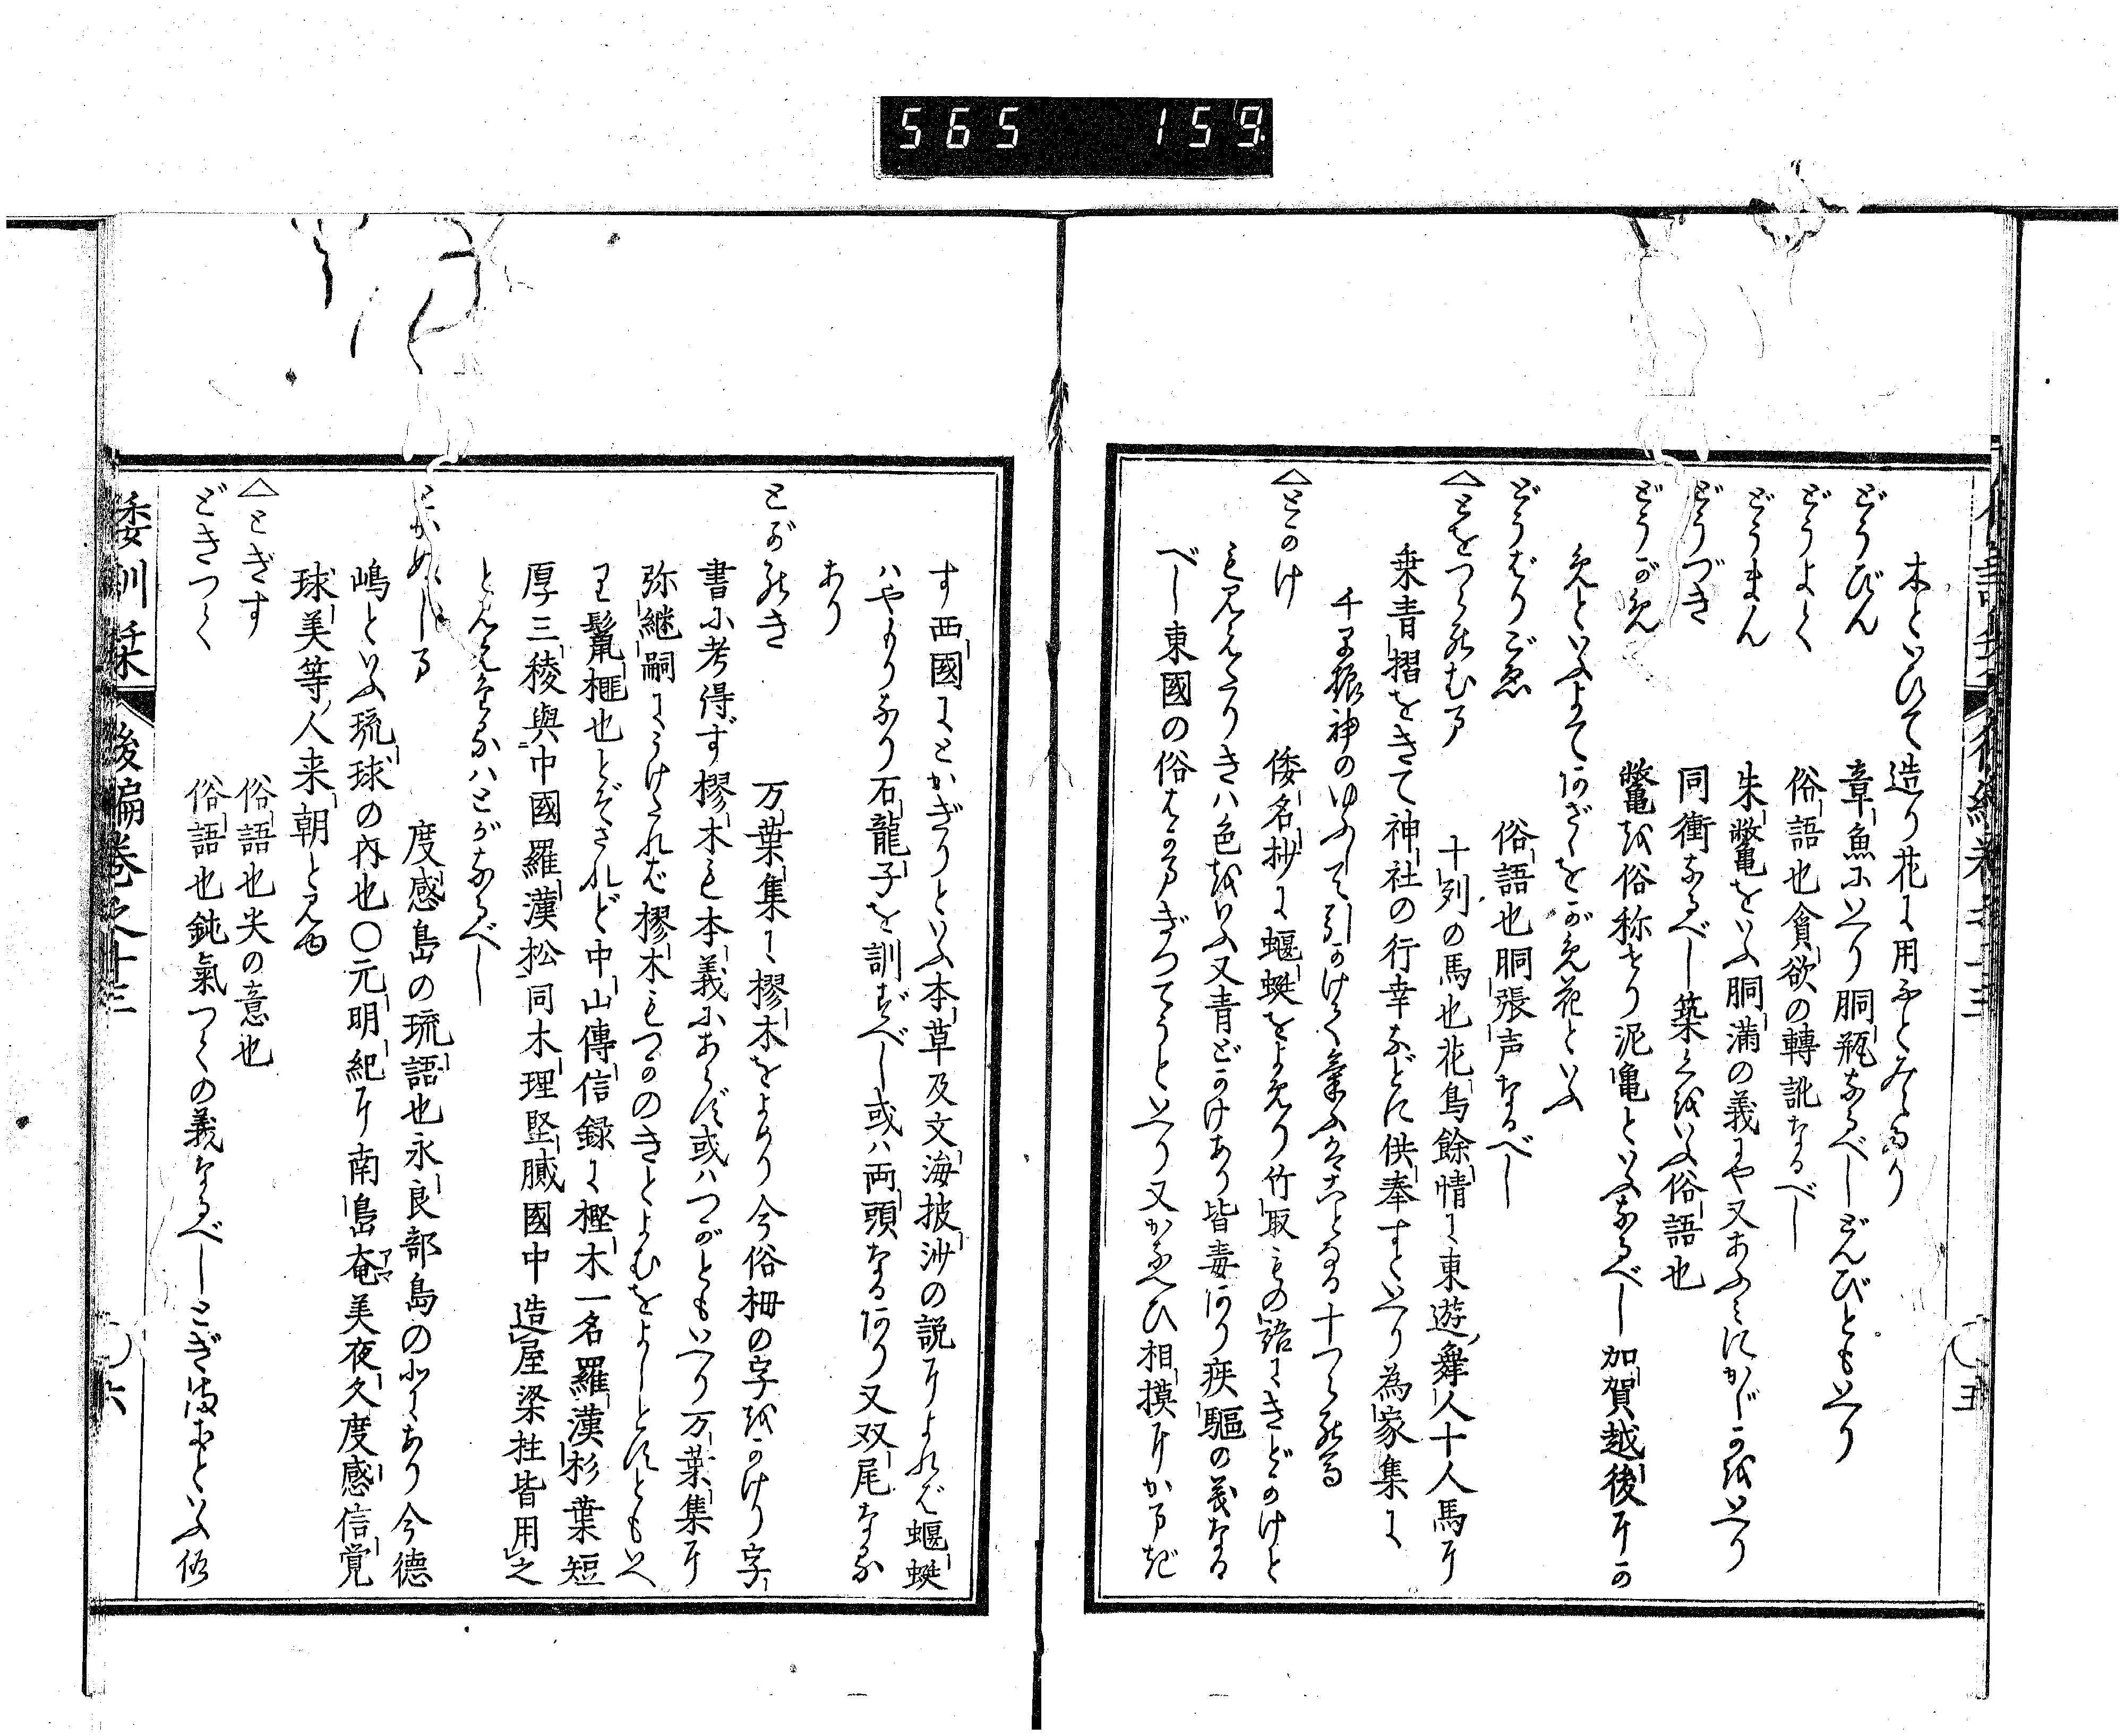 565 159
木といひて造り花に用ふとみえたり
どうびん 章魚にいへり胴瓶なるべしどんびともいへり
どうよく 俗語也貪欲の轉訛なるべし
どうまん 朱鼈をいふ胴満の義にや又あふみにかぢかをいへり
どうづき 同衝なるべし築くをいふ俗語也
どうがめ 鼈を俗称せり泥亀といふなるべし加賀越後にか
めといふよてあざみをがめ花といふ
どうばりごゑ 俗語也胴張声なるべし
△とをつらのむま 十列の馬也花鳥餘情に東遊舞人十人馬に
乗青摺をきて神社の行幸などに供奉すといへり為家集に
千早振神のゆふして引かけて象ふけふとなる十つらの馬
△とかけ 倭名抄に蝘蜓をよめり竹取ものがたりにきどかけと
も見えたりきハ色をいふ又青どかけあり皆毒あり疾駆の義なる
べし東國の俗はかまぎつてうといへり又かなへひ相摸にかまぎ
す西國にとかぎりといふ本草及文海披沙の説によれば蝘蜓
ハやもりなり石龍子を訓ずべし或ハ両頭なるあり又双尾なる
あり
とがのき 万葉集に樛木をよめり今俗栂の字をかけり字
書に考得ず樛木も本義にあらず或ハつがともいへり万葉集に
弥継嗣にうけたれば樛木もつがのきとよむをよしとすともいへ
り鬣榧也とぞされど中山傳信録に樫木一名羅漢杉葉短
厚三稜與中國羅漢松同木理堅膩國中造屋梁柱皆用之
と見えたるハとがなるべし
とかのしま 度感島の琉語也永良部島の北にあり今德
嶋といふ琉球の内也〇元明紀に南島奄美夜久度感信覚
球美等人来朝と見ゆ
△とぎす 俗語也尖の意也
どきつく 俗語也鈍氣つくの義なるべしとぎまぎといふ俗
倭訓栞 後編巻之十三 〇六